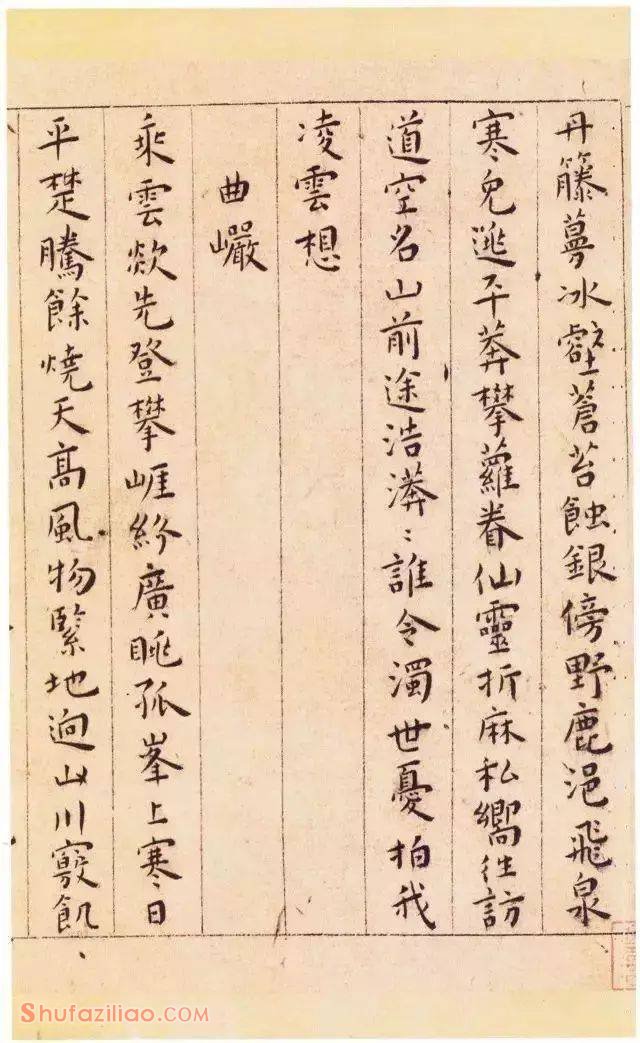 丹籐蔓冰壑蒼苔蝕銀傍野鹿浥飛泉
寒兔逃平莽攀蘿眷仙靈折麻私嚮往訪
道空名山前途浩漭〻誰令濁世憂拍我
凌雲想
曲巖
乘雲歘先登攀崕終廣眺孤峯上寒日
平楚騰餘燒天高風物緊地逈山川竅飢
Shufaziliao.COM